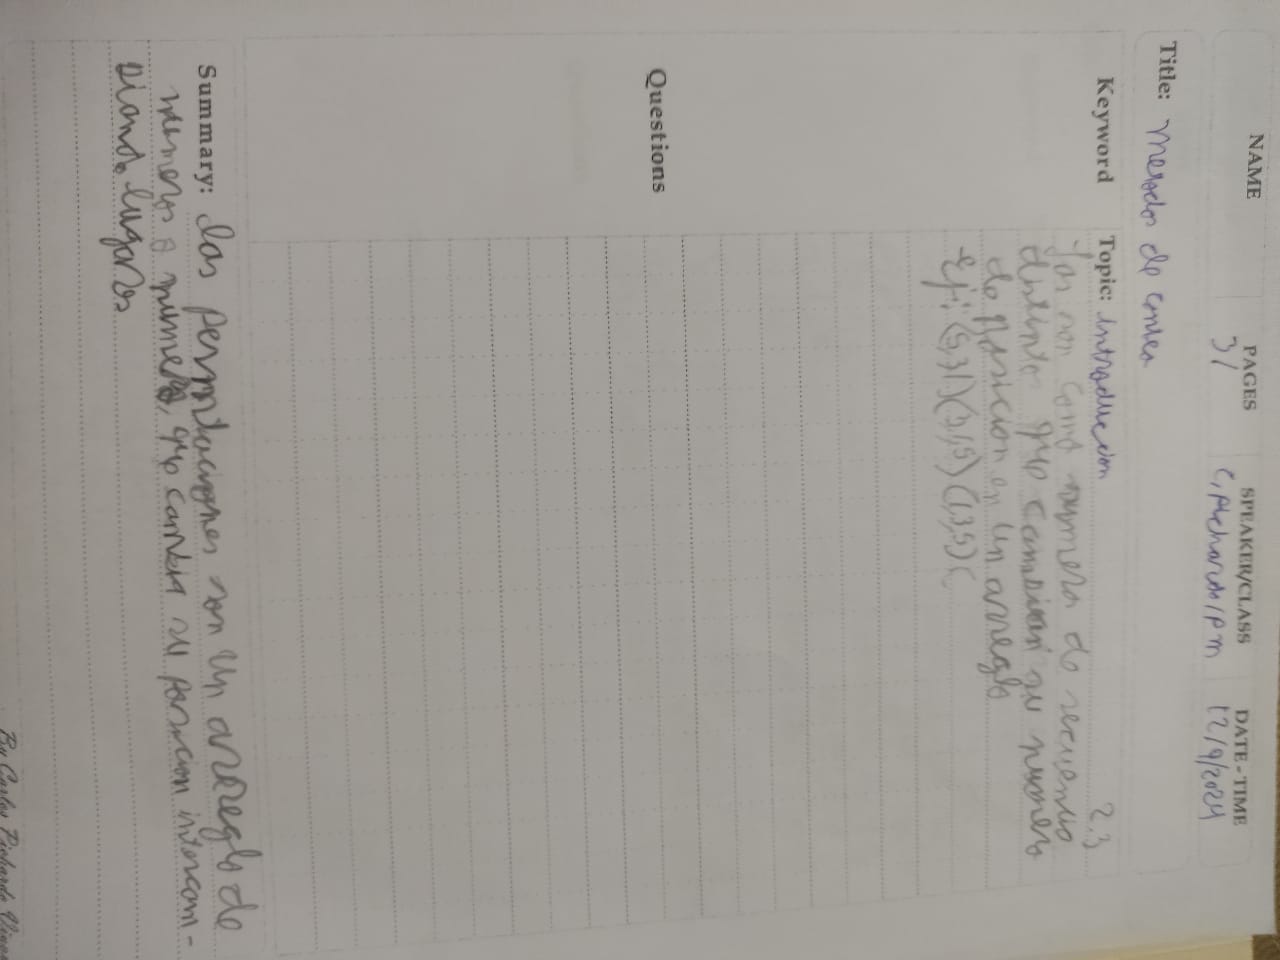 NAME
PAGES
SPEAKER/CLASS
DATE - TIME
31
C, Pichardo/PM
12/9/2024
Title: de conteo
Keyword
Topic: Introduccion
2.3
son numeros de
que cambian su numero
de posicion en un arreglo
Ej: (5,31)(3,1,5)(1,3,5)(
Questions
Summary: Las permutaciones son un arreglo de
numeros o numeros, que cambia su posicion intercam-
biando lugares
By Carlos Pichardo